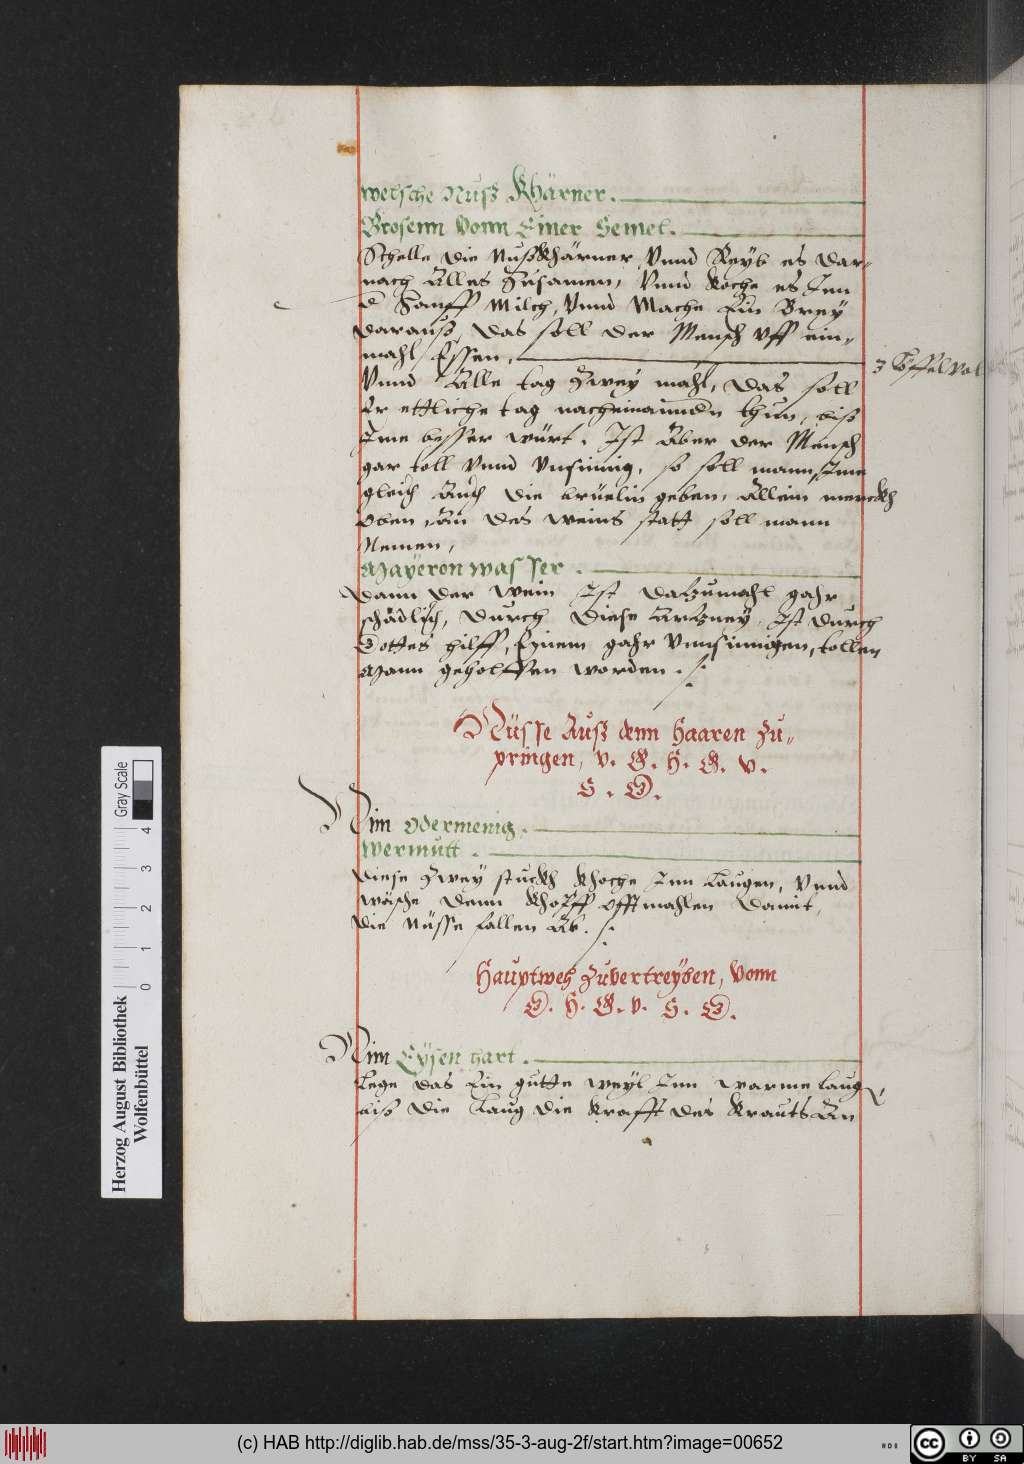 welsche Nuß Khärner.
Brosenn Vonn Einer Semel.
Schelle die Nußkhärner Vnnd Reyb es dar=
nach Alles Zusamen, Vnnd koche es Jnn
Hanff Milch, Vnnd Mache Ein Brey
darauß, das soll der Mensch vff ein=
mahl Essen, 3 Löffel vol
Vnnd Alle tag Zwey mahl, das soll
Er ettliche tag nacheinanndn thun, biß
Jme besser würt. Jst Aber der Mensch
gar toll Vnnd Vnsinnig, so soll mann Jme
gleich Auch die brüelin geben, Allein merckh
oben, An des weins statt soll mann
Nemen,
Mayeron wasser.
Dann der Wein Jst daZumahl gahr
schädlich, durch diese ArZney, Jst durch
Gottes hilff, Einem gahr Vnnsinnigen, tollen
Mann geholffen worden ./.
Nüsse Auß denn Haaren Zu=
pringen, v. G. H. G. v.
S. G.
Nim Odermenig.
Wermutt.
Diese Zwey stuckh khoche Jnn Laugen, Vnnd
wäsche denn khopff offtmahlen damit,
die Nüsse fallen Ab ./.
Hauptweh Zuvertreyben, Vonn
G. H. G. v. S. G.
Nim Eysen hart.
Lege das Ein gutte weyl Jnn warme laug
biß die Laug die krafft des krauts An
Herzog August Bibliothek
Wolfenbüttel
0 1 2 3 4
Gray Scale
(c) HAB http://diglib.hab.de/mss/35-3-aug-2f/start.htm?image=00652
cc BY SA